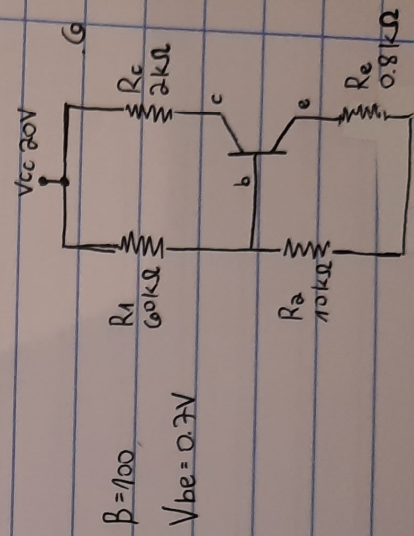 9
Vcc 20V
R1
60kΩ
Rc
2kΩ
c
b
e
R2
10kΩ
Re
0.8kΩ
β=100
Vbe=0.7V